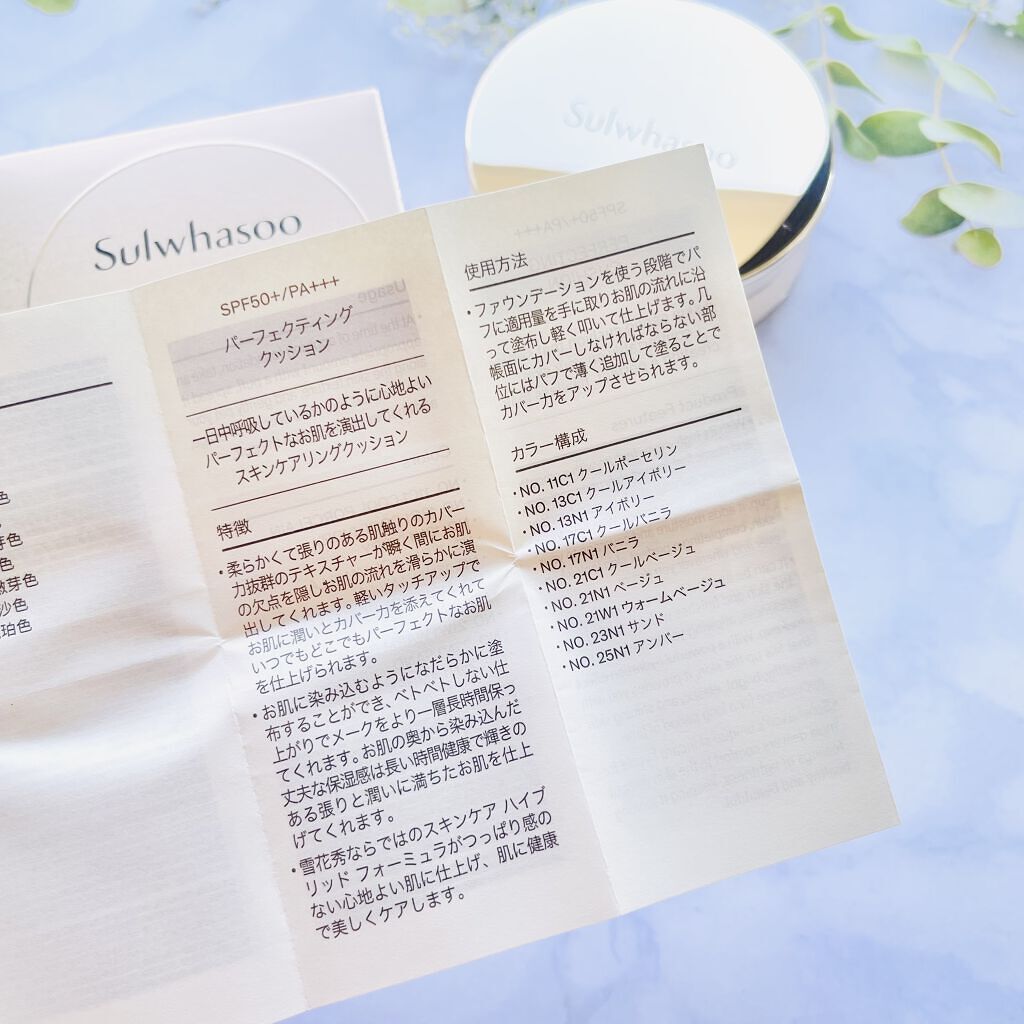 Sulwhasoo
Sulwhasoo
色
芽色
色
嫩芽色
沙色
琥珀色
SPF50+/PA+++
パーフェクティング
クッション
一日中呼吸しているかのように心地よい
パーフェクトなお肌を演出してくれる
スキンケアリングクッション
特徴
・柔らかくて張りのある肌触りのカバー
力抜群のテキスチャーが瞬く間にお肌
の欠点を隠しお肌の流れを滑らかに演
出してくれます。軽いタッチアップで
お肌に潤いとカバー力を添えてくれて
いつでもどこでもパーフェクトなお肌
を仕上げられます。
・お肌に染み込むようになだらかに塗
布することができ、ベトベトしない仕
上がりでメークをより一層長時間保っ
てくれます。お肌の奥から染み込んだ
丈夫な保湿感は長い時間健康で輝きの
ある張りと潤いに満ちたお肌を仕上
げてくれます。
・雪花秀ならではのスキンケア ハイブ
リッド フォーミュラがつっぱり感の
ない心地よい肌に仕上げ、肌に健康
で美しくケアします。
使用方法
・ファウンデーションを使う段階でパ
フに適用量を手に取りお肌の流れに沿
って塗布し軽く叩いて仕上げます。几
帳面にカバーしなければならない部
位にはパフで薄く追加して塗ることで
カバー力をアップさせられます。
カラー構成
・NO. 11C1 クールポーセリン
・NO. 13C1 クールアイボリー
・NO. 13N1 アイボリー
・NO. 17C1 クールバニラ
・NO. 17N1 バニラ
・NO. 21C1 クールベージュ
・NO. 21N1 ベージュ
・NO. 21W1 ウォームベージュ
・NO. 23N1 サンド
・NO. 25N1 アンバー